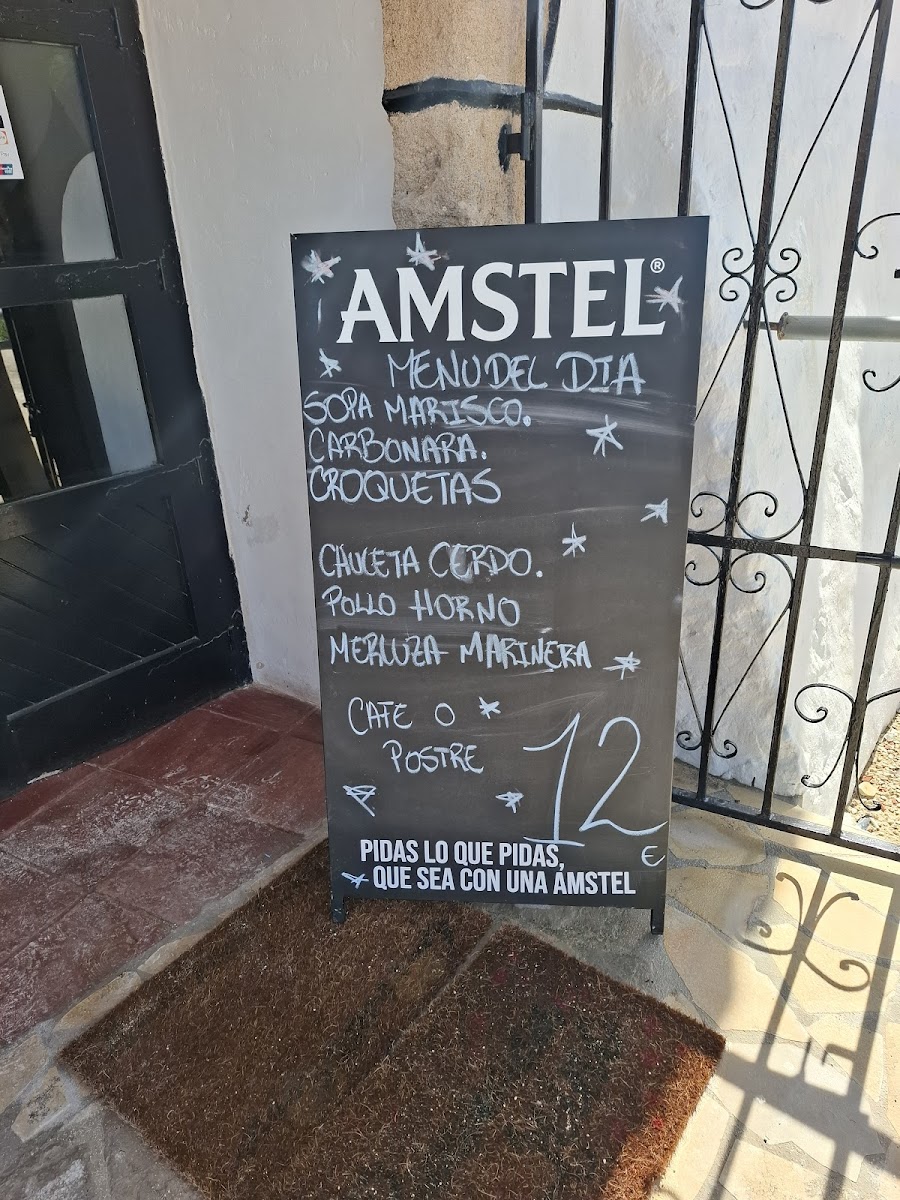 AMSTEL®
MENU DEL DIA
SOPA MARISCO.
CARBONARA.
CROQUETAS
CHULETA CERDO.
POLLO HORNO
MERLUZA MARINERA
CAFE O
POSTRE
12
€
PIDAS LO QUE PIDAS,
QUE SEA CON UNA AMSTEL